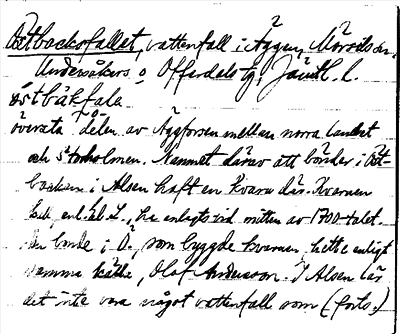 Östbacksfallet, vattenfall i Äggen, Mörsils sn,
Undersåkers o. Offerdals tg, Jämtl. l.
östbåkfala
översta delen av Äggforsen mellan norra landet
och Storholmen. Namnet därav att bönder i Öst-
backen i Alsen haft en kvarn där. Kvarnen
enl. L., ha enlagts vid mitten av 1700-talet.
De bonde i Ö., som byggde kvarnen, hette enligt
samma källa, Olof Andersson. I Alsen lär
det inte vara något vattenfall som (forts.)